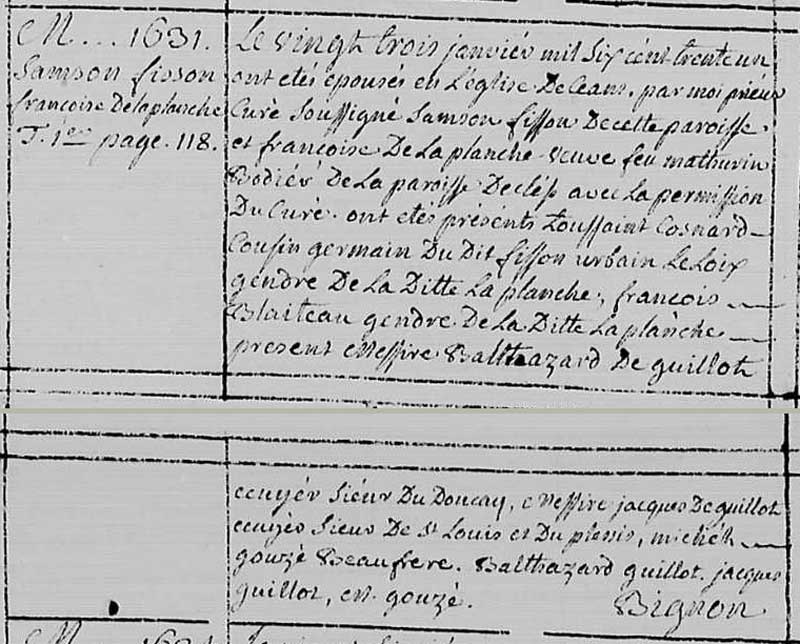 M... 1631.
Samson fisson
francoise Delaplanche
T. 1er page. 118.
Le vingt trois janviér mil Six cent trente un
ont etés epousés en L'eglise De Ceans. par moi prieur
Curé Soussigné Samson fisson De cette paroisse.
et francoise De La planche veuve feu mathurin
Bodiér De La paroisse De clef avec La permission
Du Curé. ont etés présents toussaint Cosnard
Cousin germain Du Dit fisson urbain Le Loix
gendre De La Ditte La planche, francois
Blaiteau gendre De La Ditte La planche
present Messire Balthazard De guillot
ecuyér Siéur Du Doucay, Messire jacques De guillot
ecuyér Sieur De St Louis et Du plessis, michél
gouzé Beaufrere. Balthazard guillot. jacques
guillot, M. gouzé.
Bignon